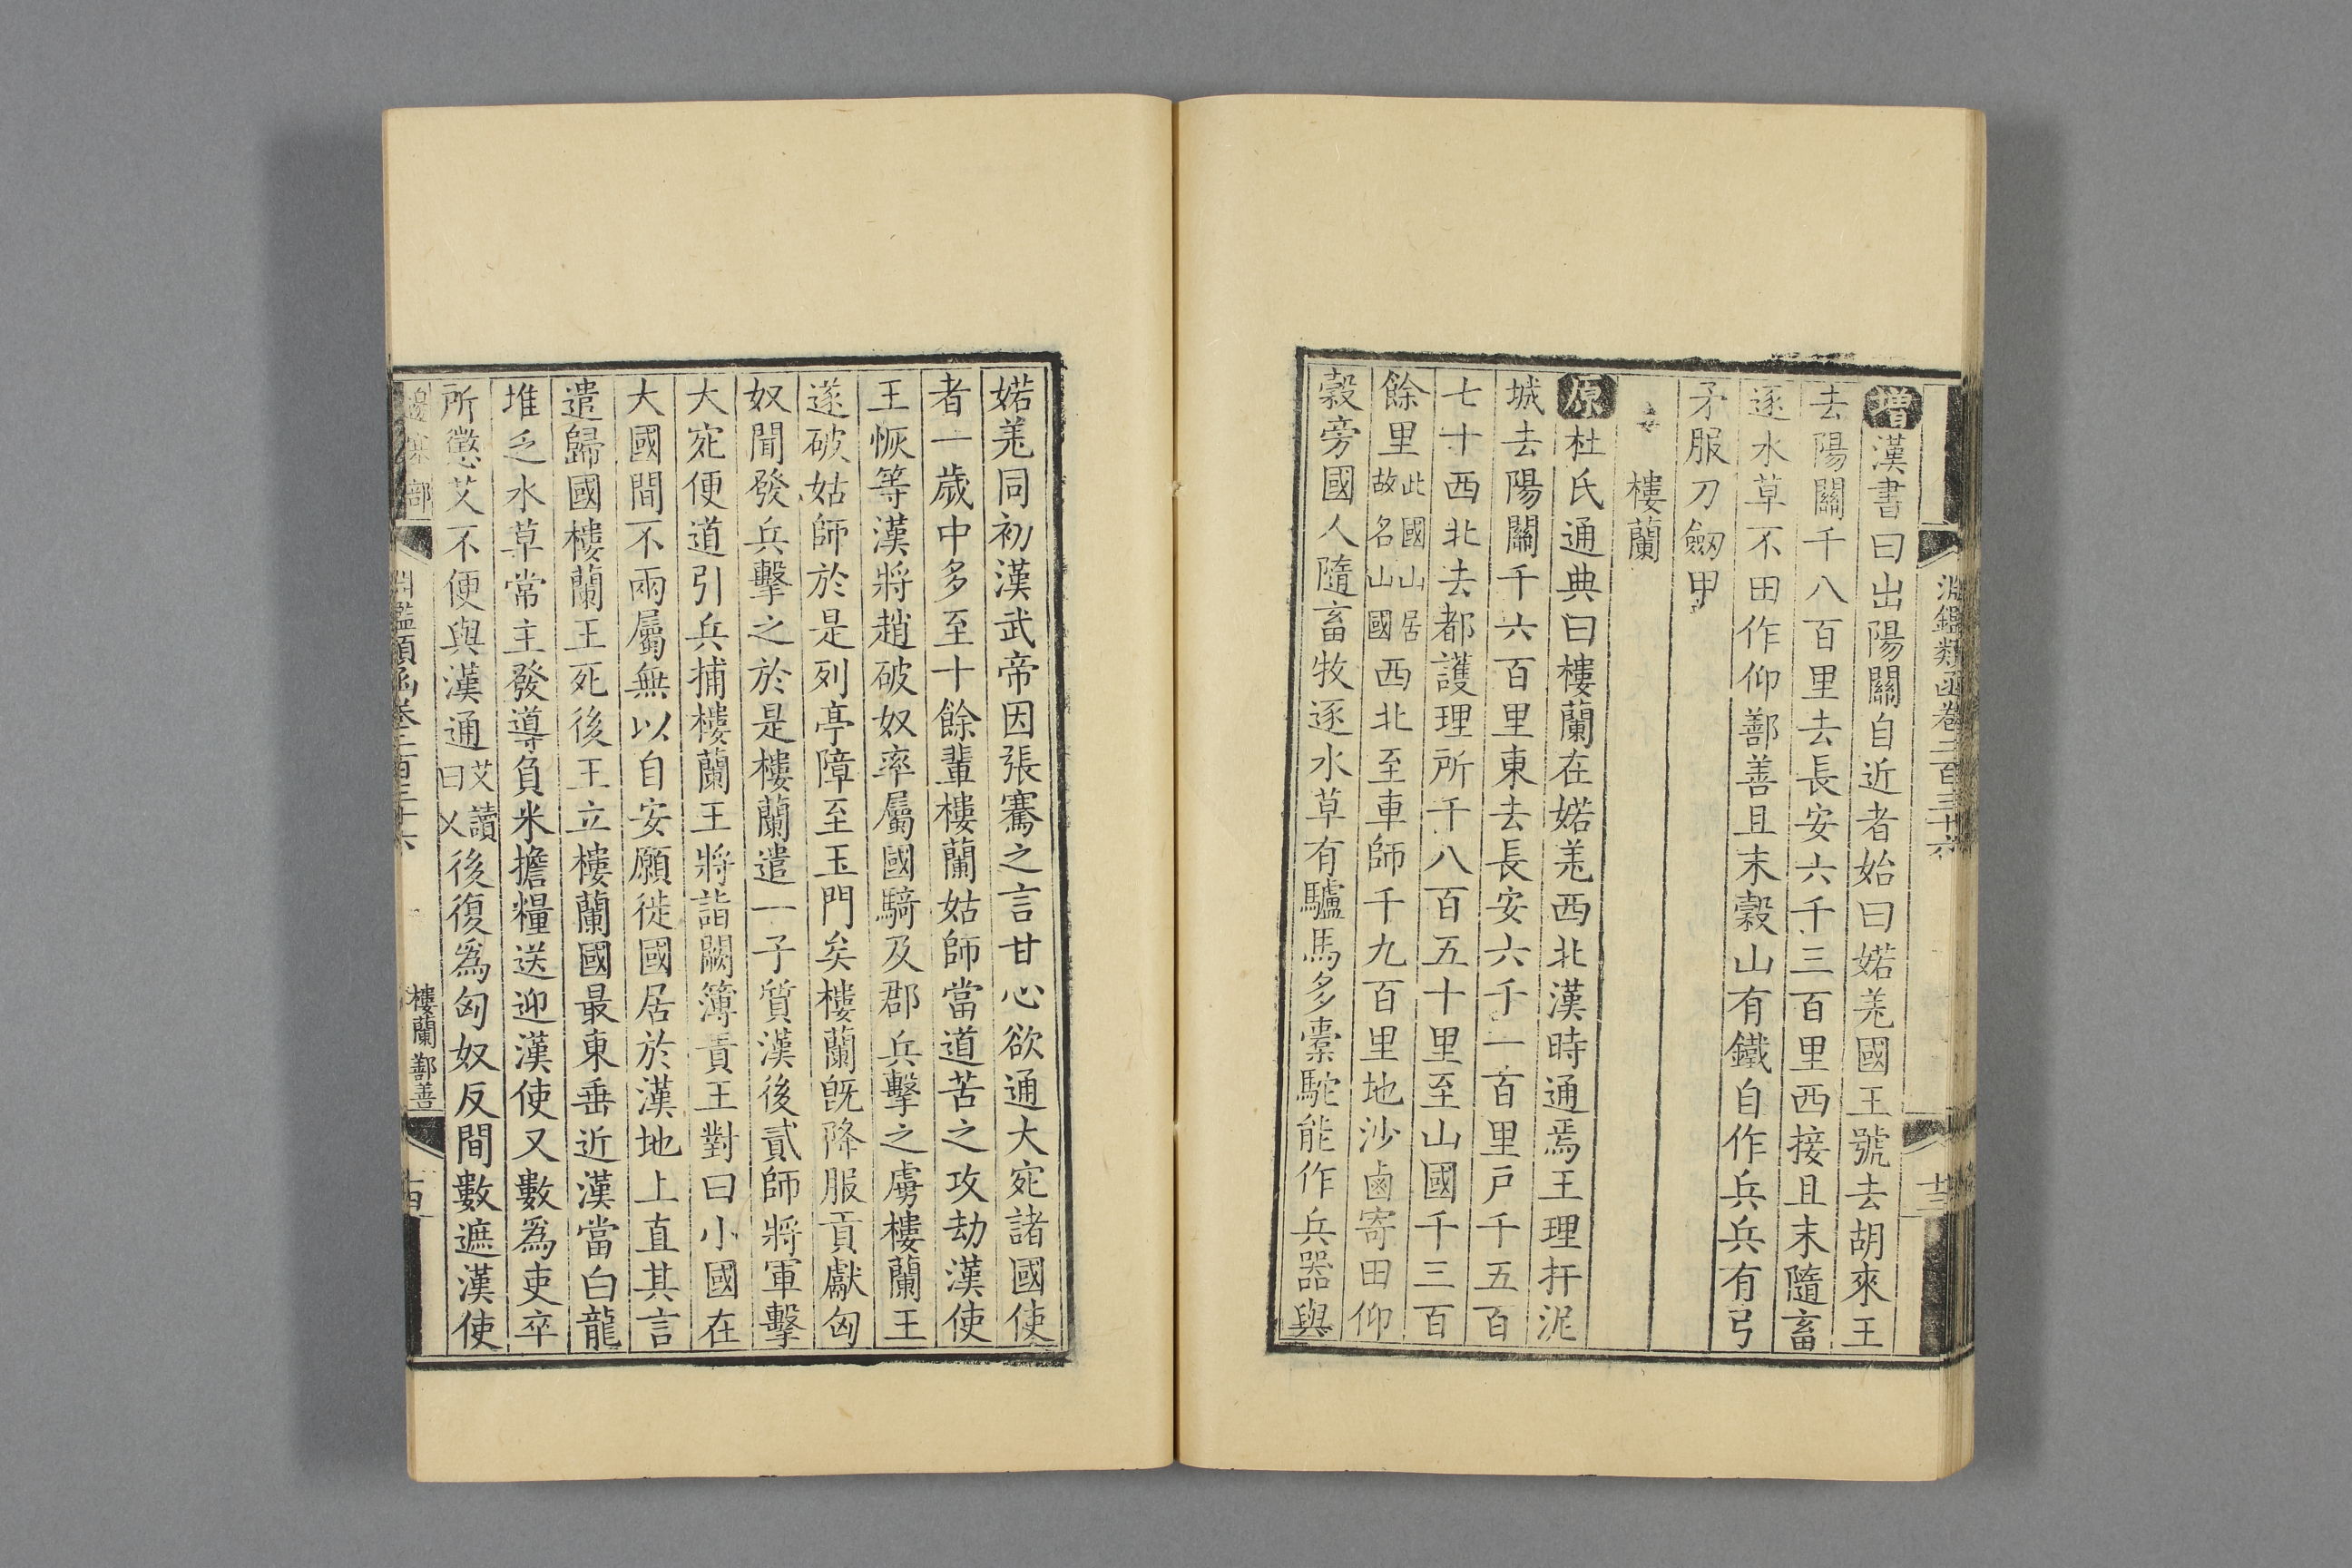 淵鑑類函卷二百三十六
增漢書曰出陽關自近者始曰婼羌國王號去胡來王
去陽關千八百里去長安六千三百里西接且末隨畜
逐水草不田作仰鄯善且末穀山有鐵自作兵兵有弓
矛服刀劒甲
樓蘭
原杜氏通典曰樓蘭在婼羌西北漢時通焉王理扞泥
城去陽關千六百里東去長安六千一百里戶千五百
七十西北去都護理所千八百五十里至山國千三百
餘里此國山居故名山國西北至車師千九百里地沙鹵寄田仰
穀旁國人隨畜牧逐水草有驢馬多槖駝能作兵器與
婼羌同初漢武帝因張騫之言甘心欲通大宛諸國使
者一歲中多至十餘輩樓蘭姑師當道苦之攻劫漢使
王恢等漢將趙破奴率屬國騎及郡兵擊之虜樓蘭王
遂破姑師於是列亭障至玉門矣樓蘭旣降服貢獻匈
奴聞發兵擊之於是樓蘭遣一子質漢後貳師將軍擊
大宛便道引兵捕樓蘭王將詣闕簿責王對曰小國在
大國間不兩屬無以自安願徙國居於漢地上直其言
遣歸國樓蘭王死後王立樓蘭國最東垂近漢當白龍
堆乏水草常主發導負米擔糧送迎漢使又數爲吏卒
所懲艾不便與漢通艾讀曰乂後復爲匈奴反間數遮漢使
邊塞部
淵鑑類函卷二百三十六
樓蘭 鄯善